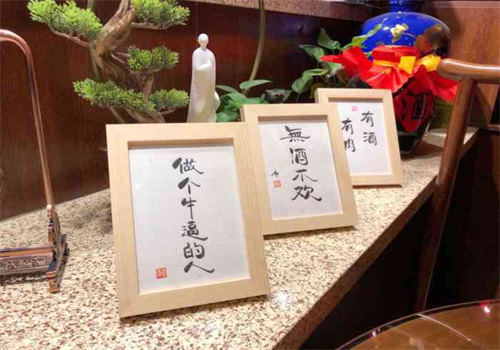 做个牛逼的人
無酒不欢
有酒
有肉
酒